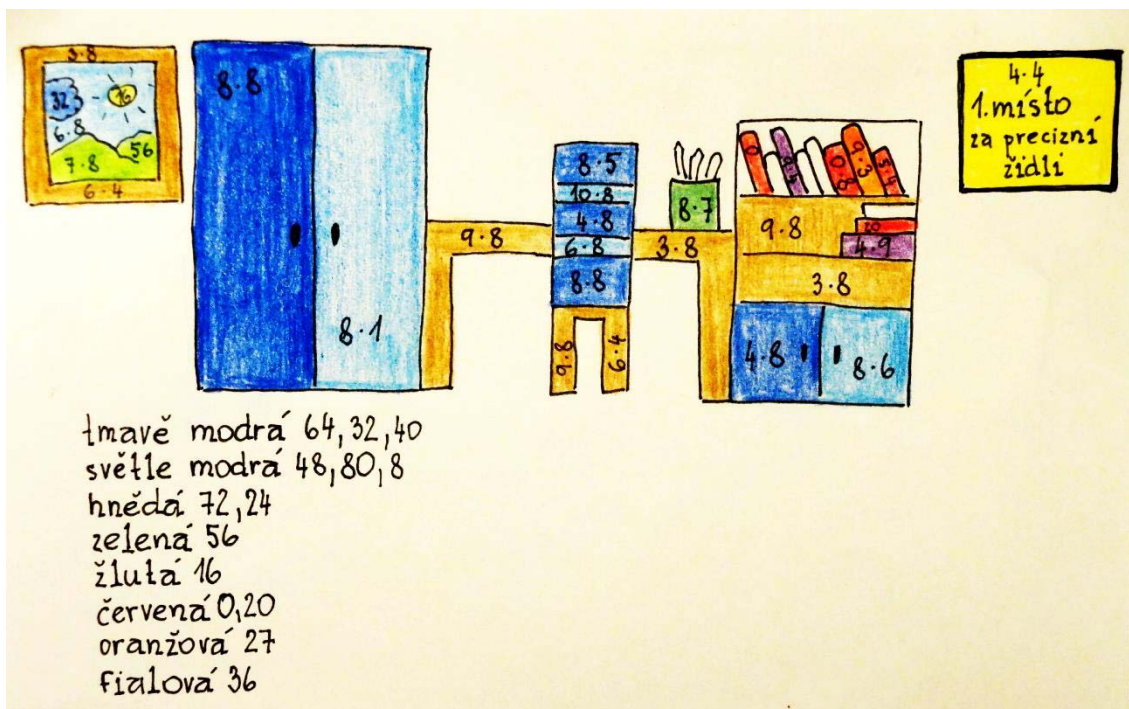 3·8
32
16
6·8
7·8
56
6·4
8·8
8·1
9·8
8·5
10·8
4·8
6·8
8·8
9·8
6·4
8·7
3·8
0
0·8
9·3
5·4
9·8
20
4·9
3·8
4·8
8·6
4·4
1. místo
za precizní
židli
tmavě modrá 64, 32, 40
světle modrá 48, 80, 8
hnědá 72, 24
zelená 56
žlutá 16
červená 0, 20
oranžová 27
fialová 36